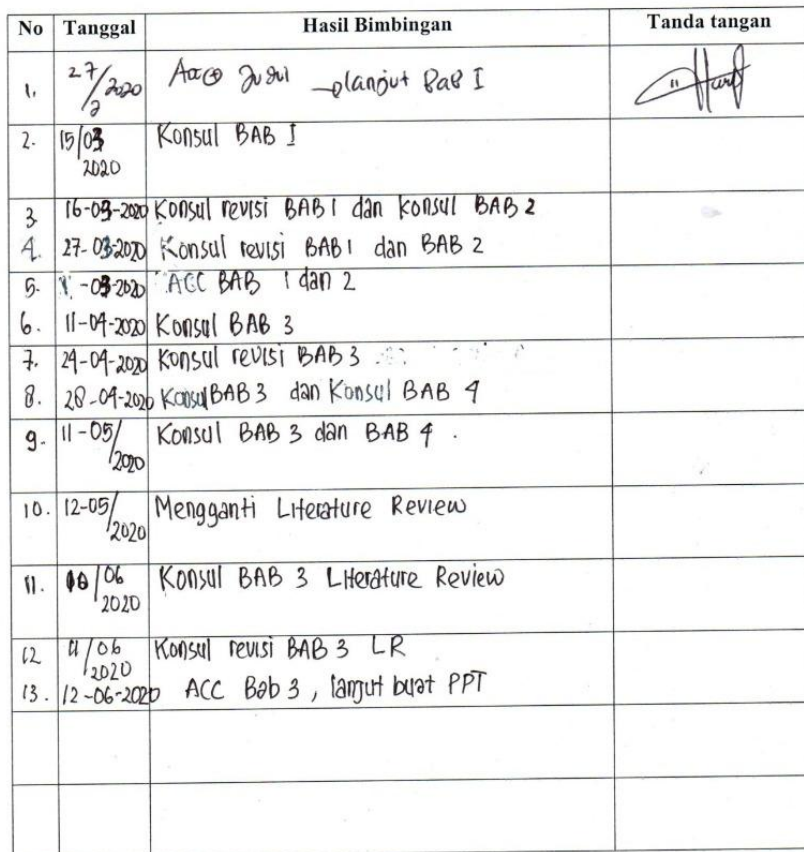 No Tanggal Hasil Bimbingan Tanda tangan
1. 27/2 2020 Acc Judul → lanjut Bab I
2. 15/03 2020 Konsul BAB I
3. 16-03-2020 Konsul revisi BAB 1 dan konsul BAB 2
4. 27-03-2020 Konsul revisi BAB 1 dan BAB 2
5. -03-2020 ACC BAB 1 dan 2
6. 11-04-2020 Konsul BAB 3
7. 24-04-2020 Konsul revisi BAB 3
8. 28-04-2020 Konsul BAB 3 dan Konsul BAB 4
9. 11-05/2020 Konsul BAB 3 dan BAB 4.
10. 12-05/2020 Mengganti Literature Review
11. /06 2020 Konsul BAB 3 Literature Review
12 11/06 2020 Konsul revisi BAB 3 LR
13. 12-06-2020 ACC Bab 3, lanjut buat PPT